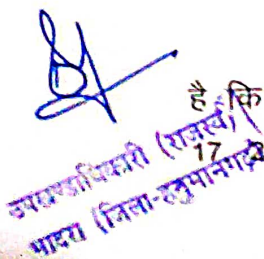 है कि
उपखण्डाधिकारी (राजस्व)
17
भादरा (जिला-हनुमानगढ़)